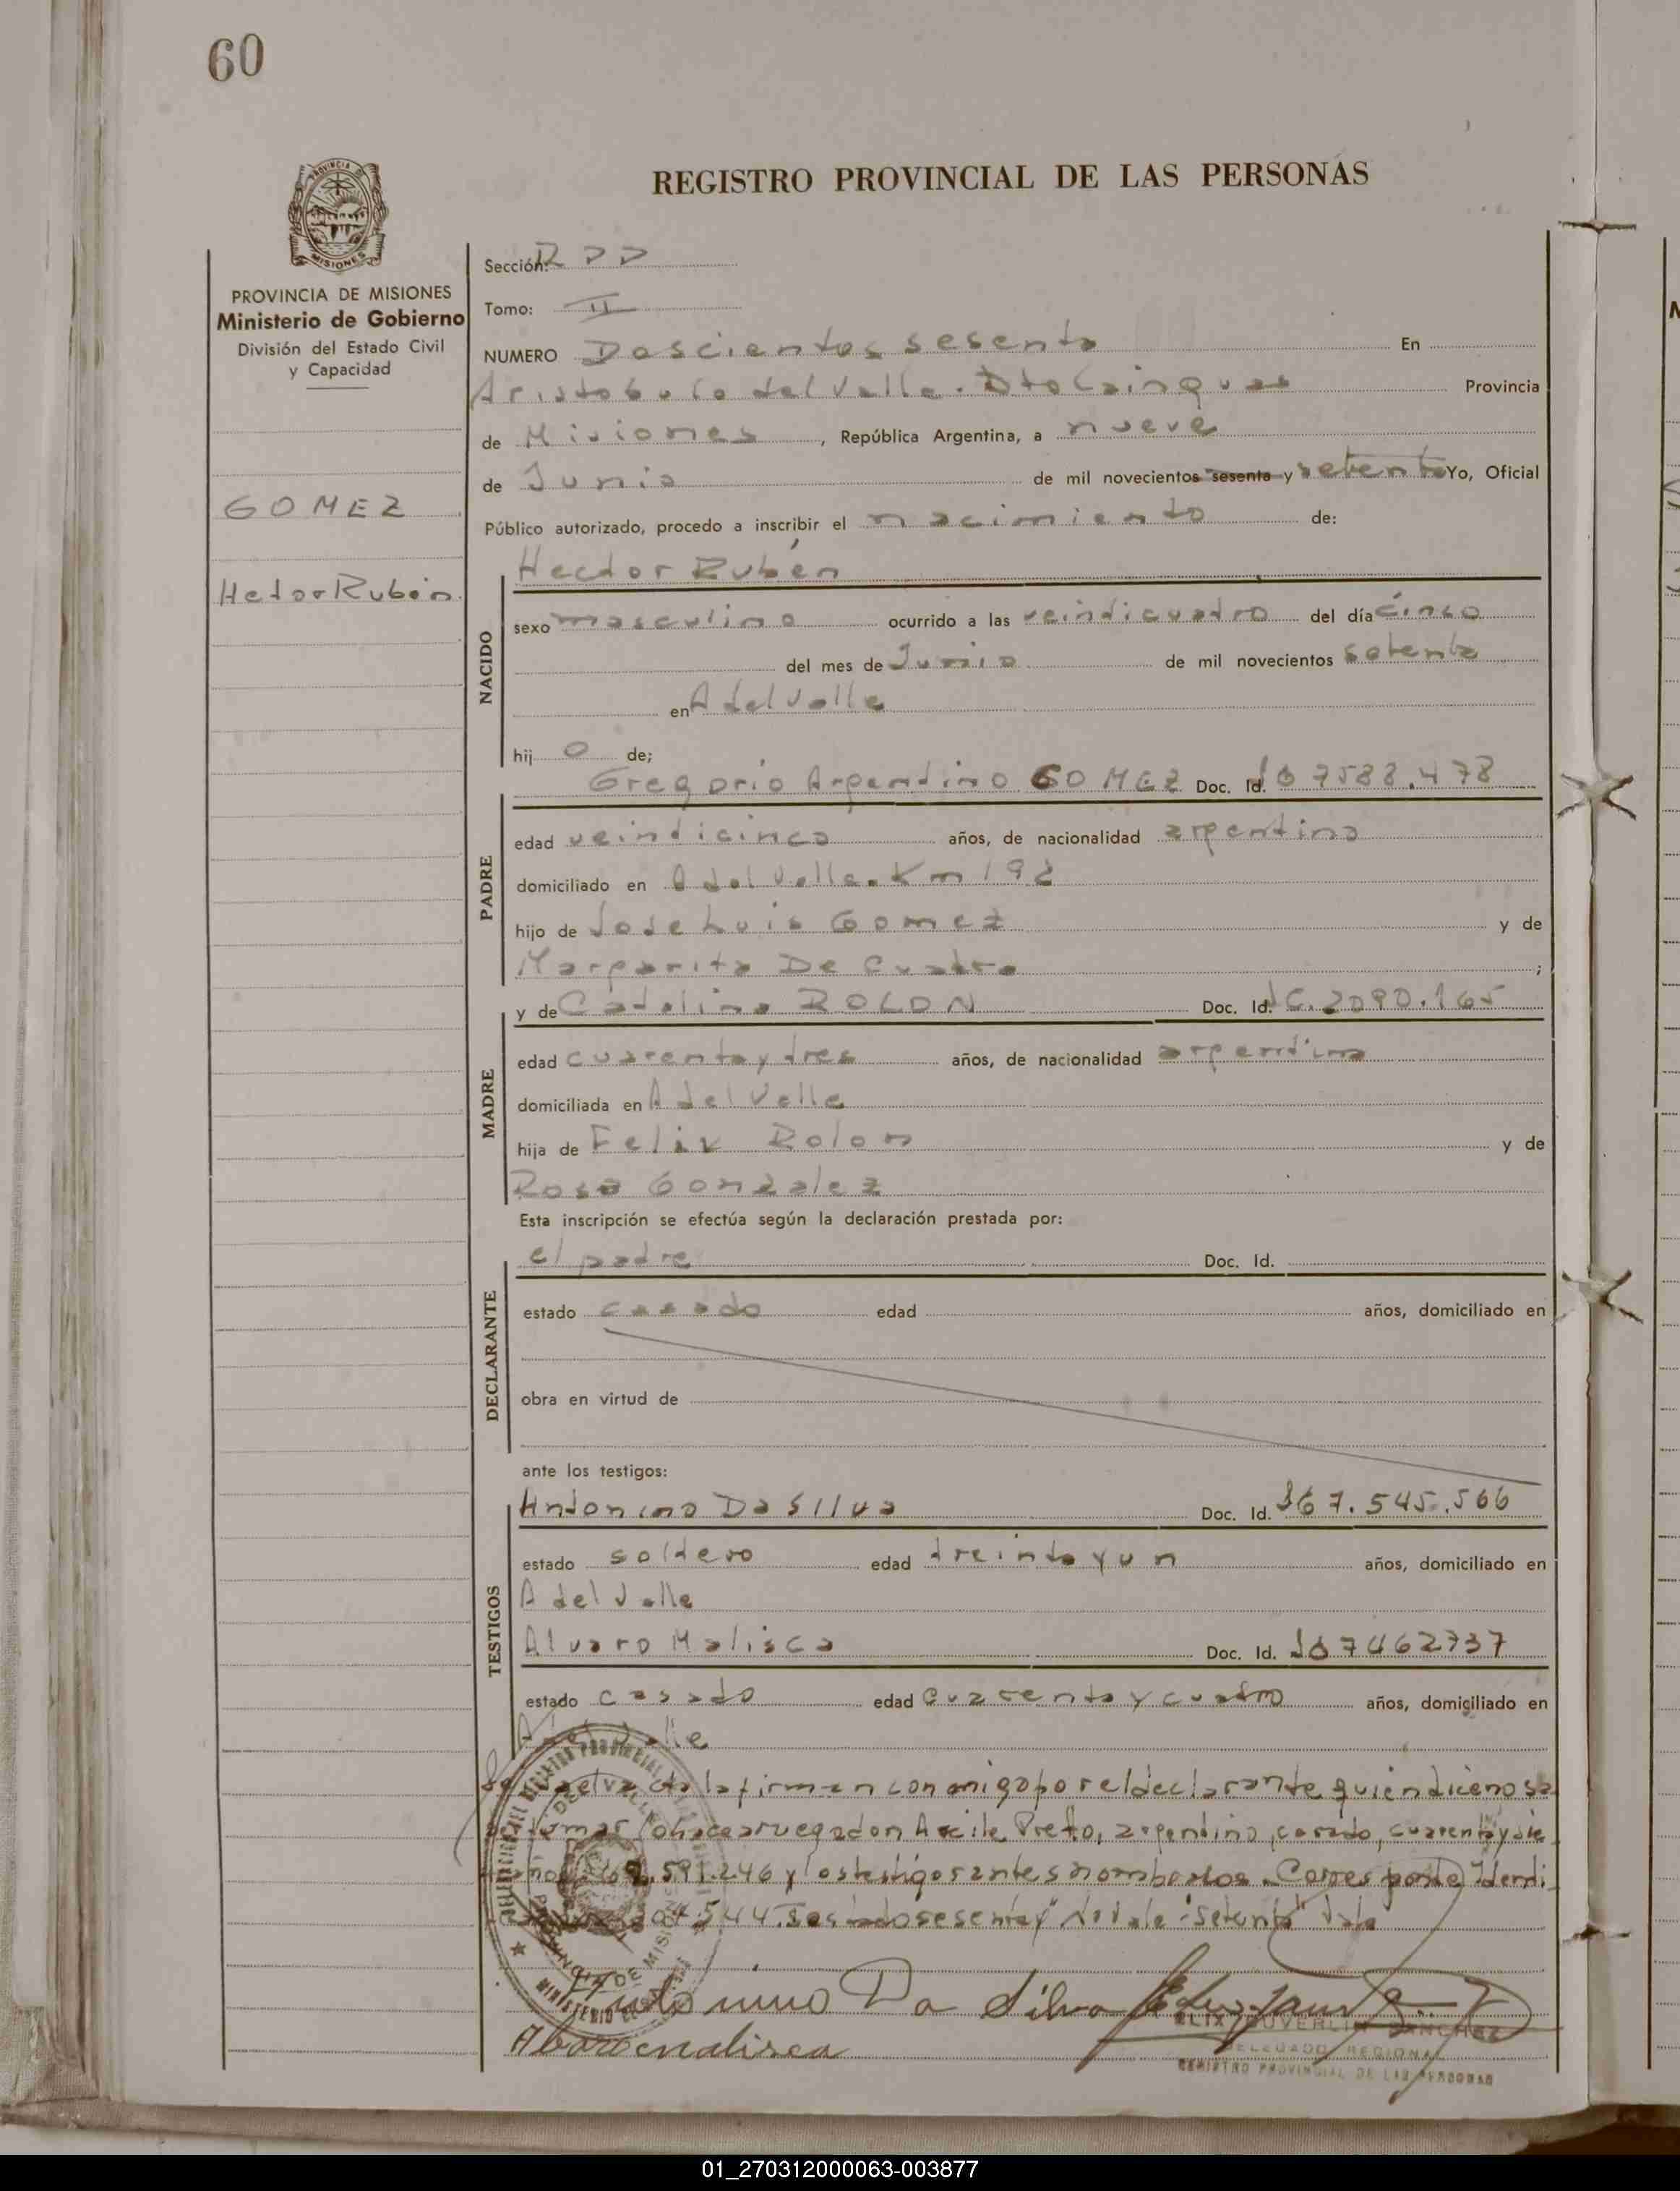 60
PROVINCIA DE MISIONES
Ministerio de Gobierno
División del Estado Civil
y Capacidad
GOMEZ
Hector Rubén.
REGISTRO PROVINCIAL DE LAS PERSONAS
Sección:
Tomo: II
NUMERO Doscientos sesenta En
Aristobulo del Valle. Dto Cainguas Provincia
de Misiones, República Argentina, a nueve
de Junio de mil novecientos sesenta y setenta Yo, Oficial
Público autorizado, procedo a inscribir el nacimiento de:
Hector Rubén
NACIDO
sexo masculino ocurrido a las veindicuadro del día cinco
del mes de Junio de mil novecientos setenta
en A del Valle
hijo de;
Gregorio Argentino GOMEZ Doc. Id. 7588.478
PADRE
edad veindicinco años, de nacionalidad argentina
domiciliado en A del Valle. Km 192
hijo de Jose Luis Gomez y de
Margarita De Cuadro ;
y de Catalina ROLON Doc. Id. 2090.165
MADRE
edad cuarenta y tres años, de nacionalidad argentina
domiciliada en A del Valle
hija de Felix Rolon y de
Rosa Gonzalez
Esta inscripción se efectúa según la declaración prestada por:
el padre Doc. Id.
DECLARANTE
estado casado edad años, domiciliado en
obra en virtud de
ante los testigos:
Antonino Da Silva Doc. Id. 7.545.566
TESTIGOS
estado soltero edad treinta y un años, domiciliado en
A del Valle
Alvaro Malisca Doc. Id. 7462737
estado casado edad cuarenta y cuatro años, domiciliado en
A del Valle
acta la firman conmigo por el declarante quien dice no sa
firmar lo hace a ruego don Prato, argentino, casado, cuarenta y sie
591.246 y los testigos antes nombrados. Corresponde Identi
544. Testado sesenta y "No Vale" "setenta" Vale
Antonino Da Silva
Alvaro malisca
SANCHEZ
DELEGADO REGIONAL
REGISTRO PROVINCIAL DE LAS PERSONAS
01_270312000063-003877